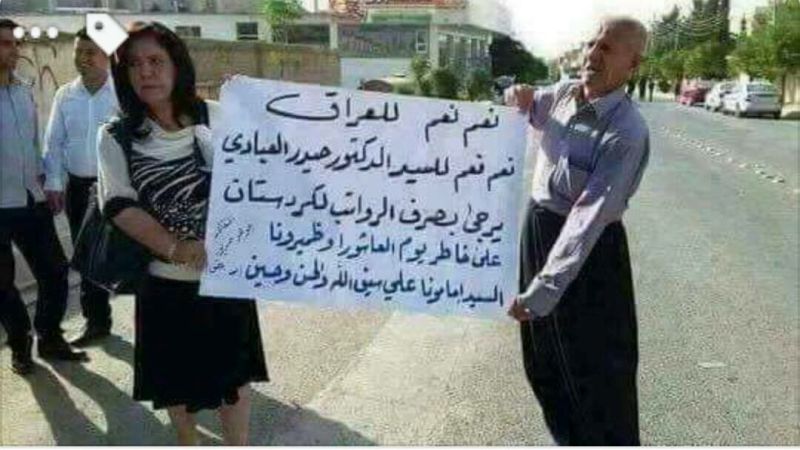 نعم نعم للعراق
نعم نعم للسيد الدكتور حيدر العبادي
يرجى بصرف الرواتب لكردستان
على خاطر يوم العاشورا وظميرونا
السيد امامونا علي سيف الله والحسن وحسين